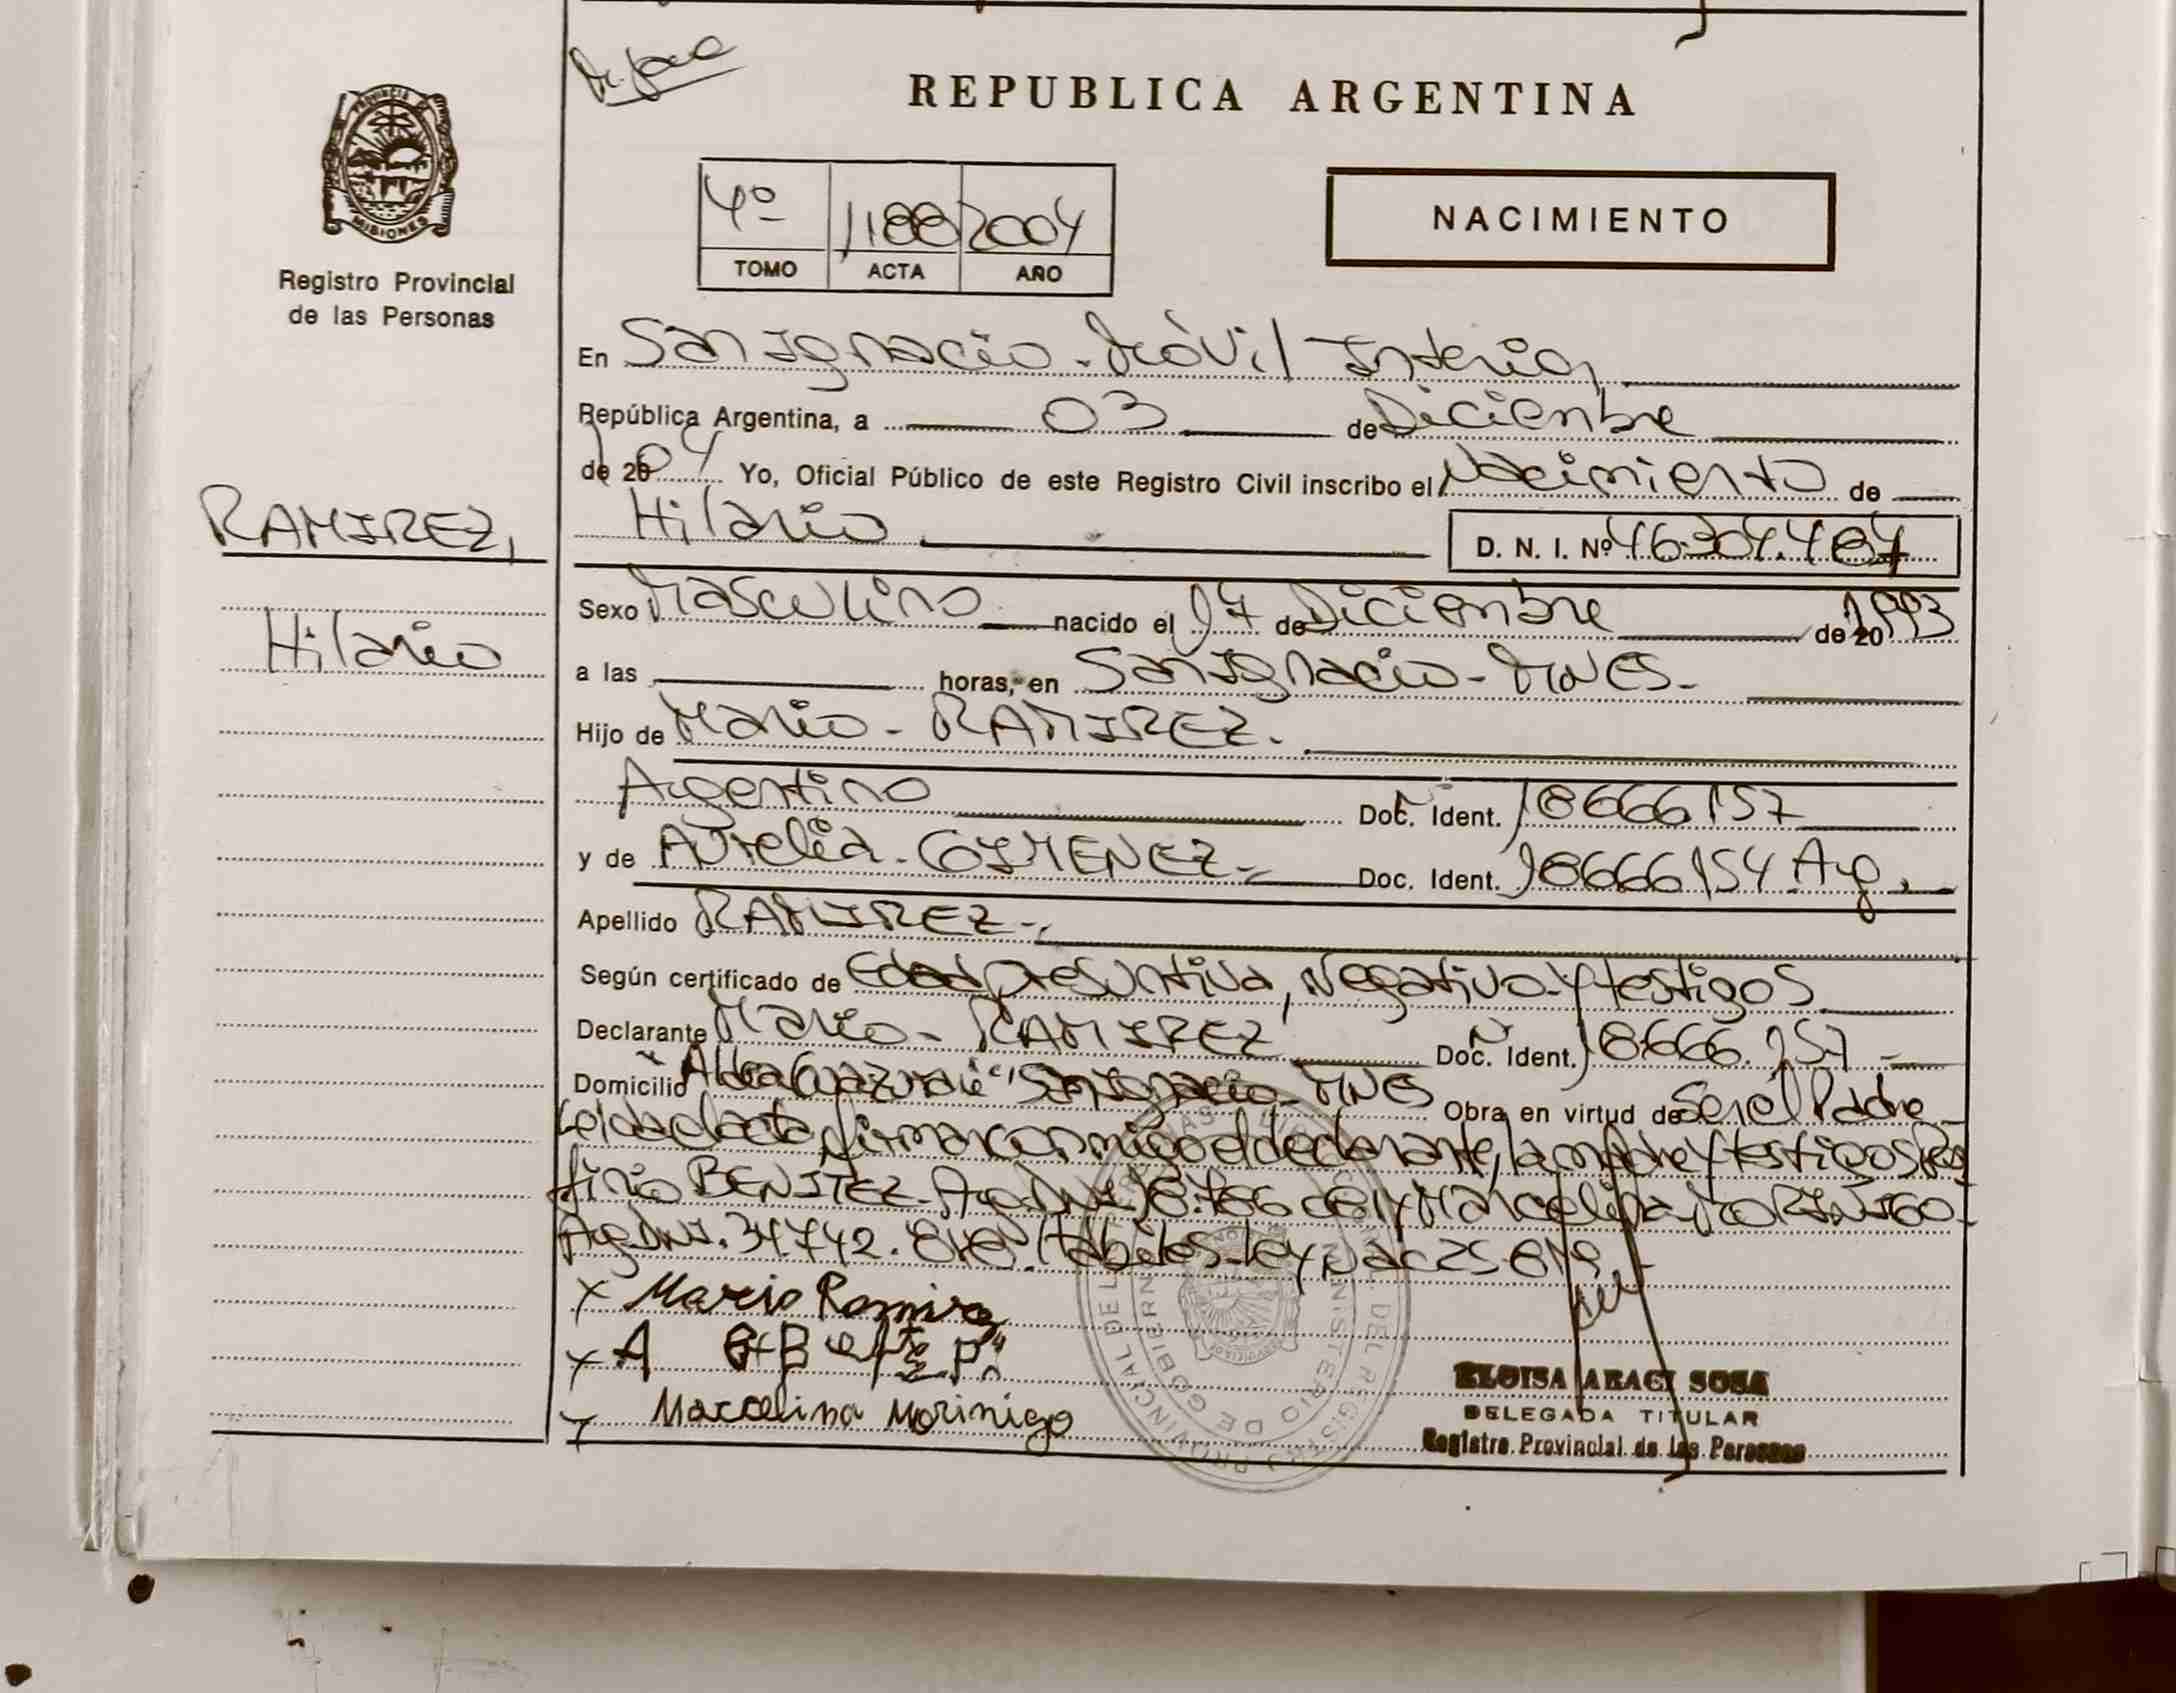 REPUBLICA ARGENTINA
PROVINCIA DE
MISIONES
Registro Provincial
de las Personas
4º 1188 2004
TOMO ACTA AÑO
NACIMIENTO
En San Ignacio - Móvil Interior
República Argentina, a 03 de Diciembre
de 2004 Yo, Oficial Público de este Registro Civil inscribo el Nacimiento de
RAMIREZ,
Hilario
Hilario D. N. I. Nº
Sexo Masculino nacido el 17 de Diciembre de 1993
a las horas, en San Ignacio - MNES.
Hijo de Mario - RAMIREZ.
Argentino Doc. Ident. 18666157
y de Aurelia - GIMENEZ Doc. Ident. 18666154 Arg.
Apellido RAMIREZ
Según certificado de Edad presuntiva, Negativo y testigos
Declarante Mario - RAMIREZ Doc. Ident. 18.666.157
Domicilio Aldea San Ignacio - MNES Obra en virtud de Ser el Padre
Leida el acta firman conmigo el declarante, la madre y testigos
BENITEZ Arg. DNI y Marcelina MORINIGO
Arg. DNI. 34.742. Hábiles - ley
x Mario Ramirez
x A
x Marcelina Morinigo
ELOISA ARACI SOSA
DELEGADA TITULAR
Registro Provincial de las Personas